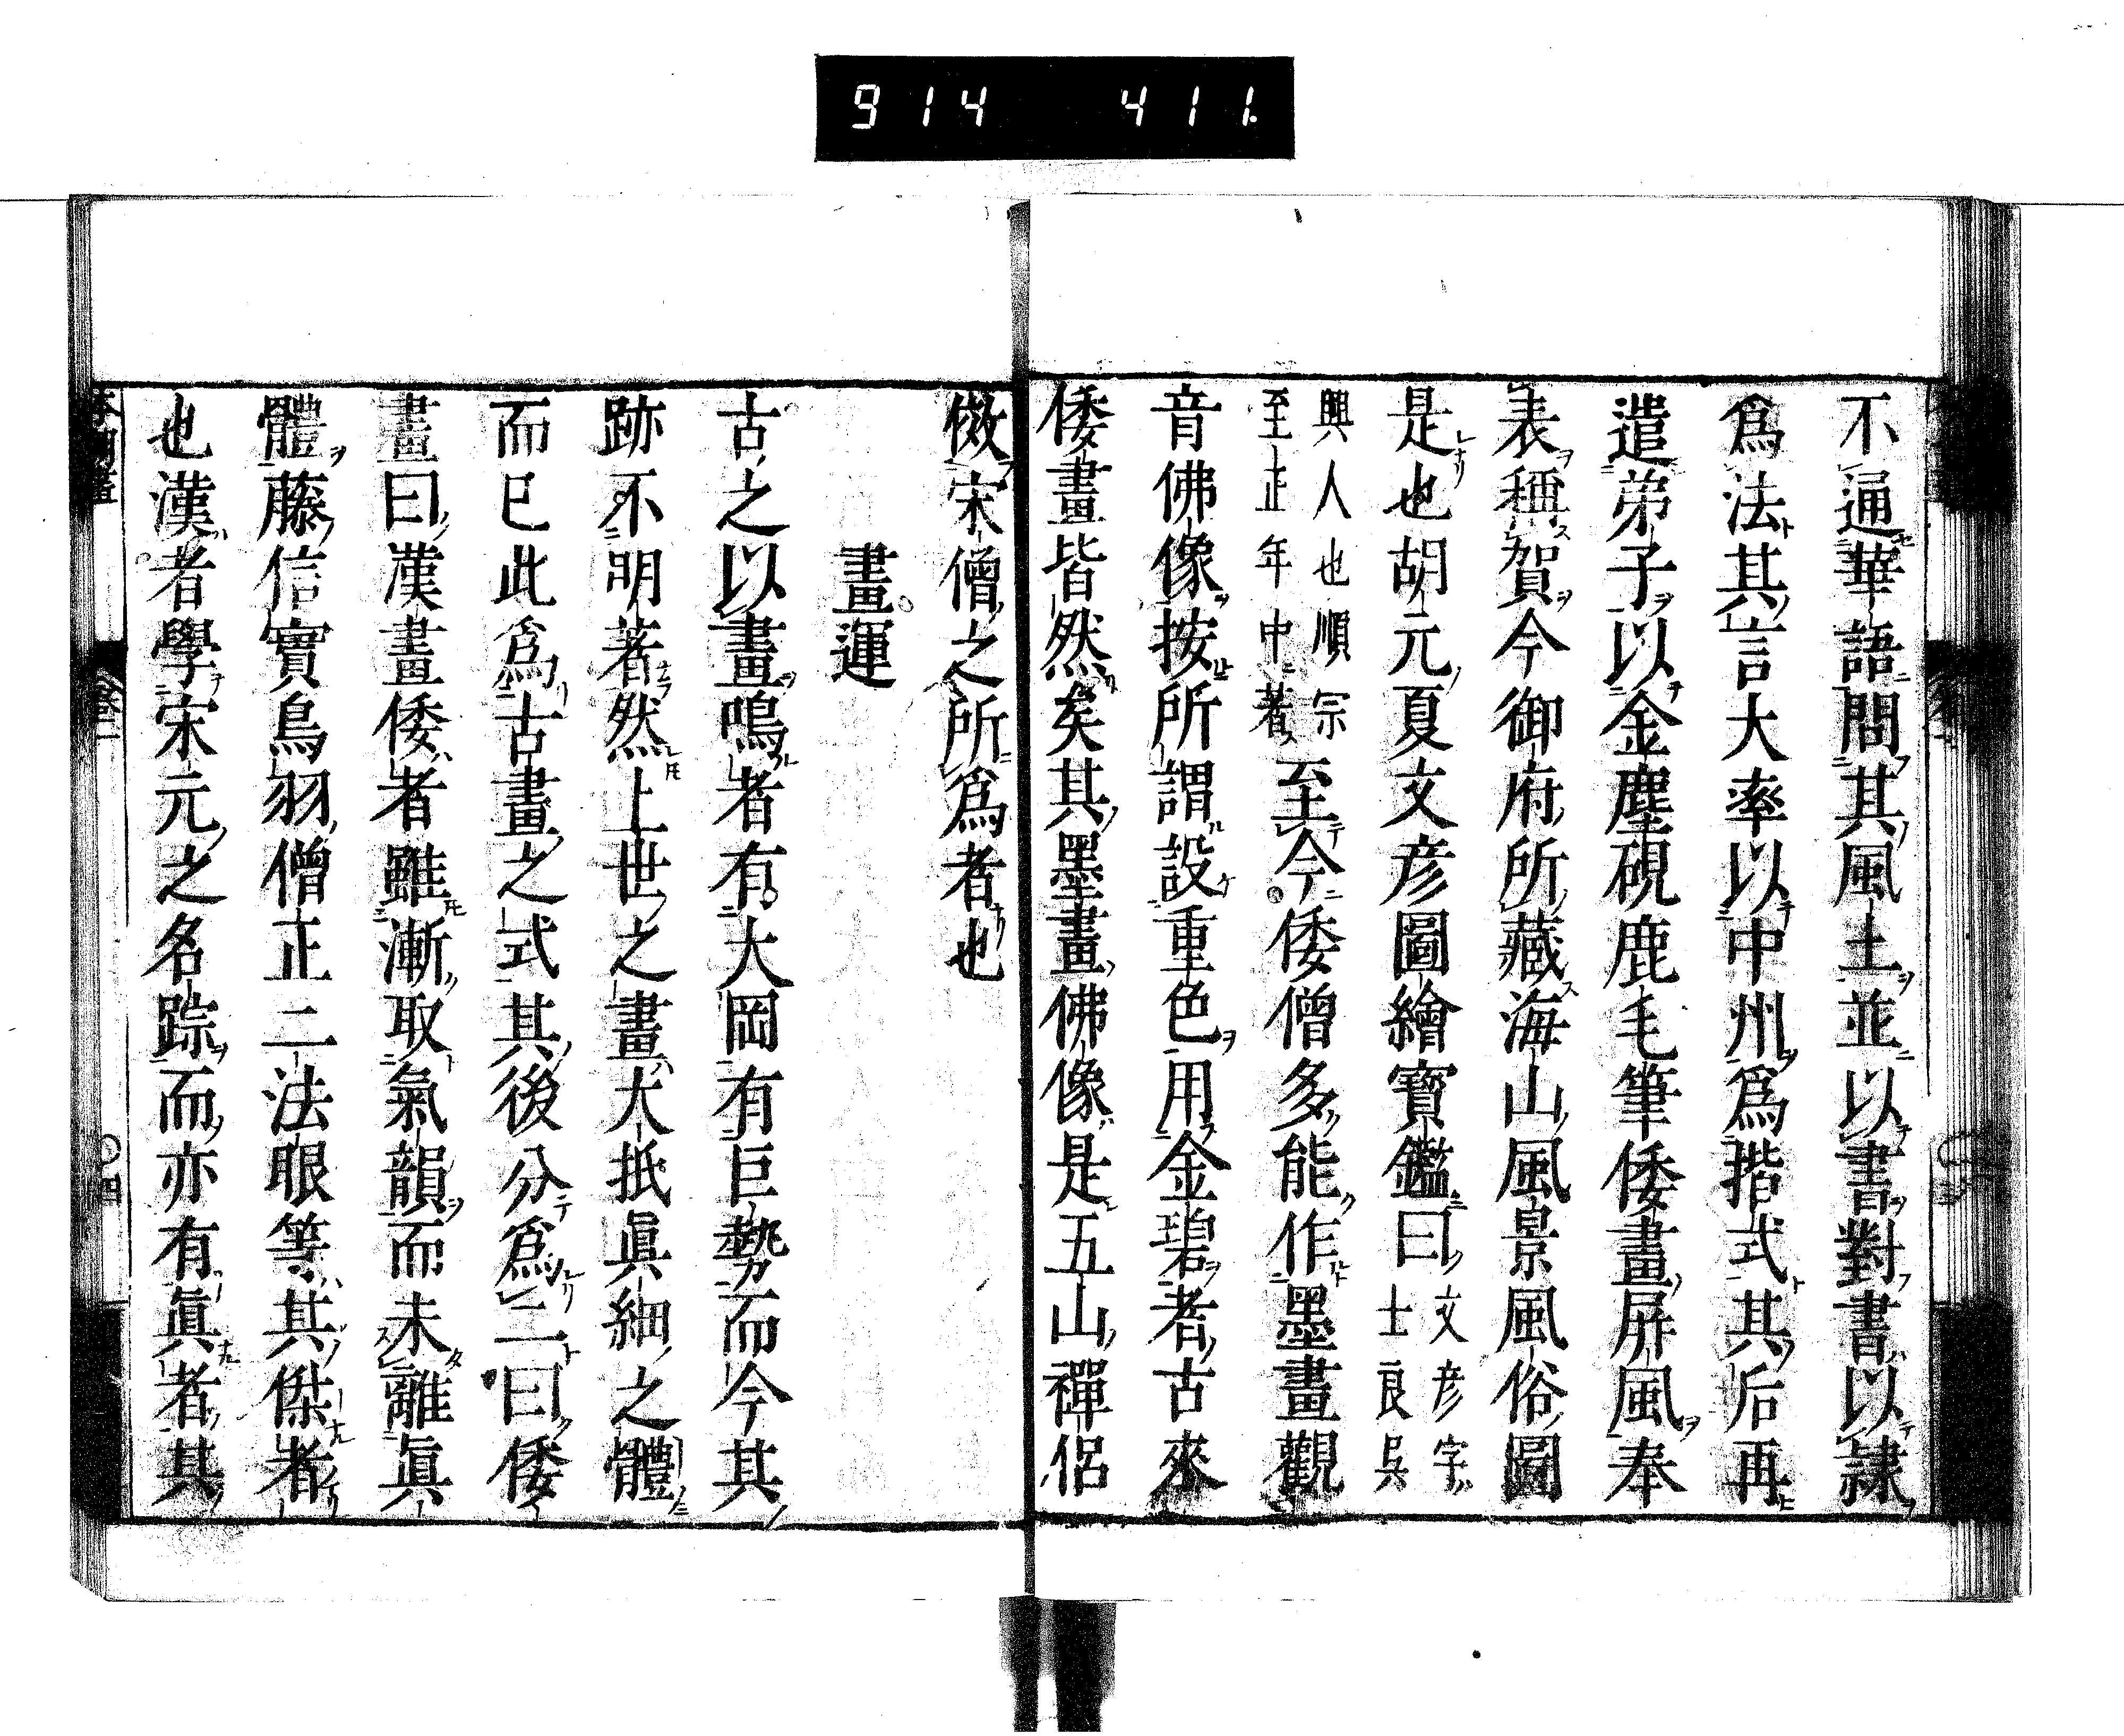 914 411.
不通華語問其風土並以書對書以隷
爲法其言大率以中州爲揩式其后再
遣弟子以金塵硯鹿毛筆倭畫屏風奉
表稱賀今御府所藏海山風景風俗圖
是也胡元夏文彦圖繪寶鑑曰文彦字士良呉
興人也順宗至正年中著至今倭僧多能作墨畫觀
音佛像按所謂設重色用金碧者古來
倭畫皆然矣其墨畫佛像是五山禪侶
倣宋僧之所爲者也
畫運
古之以畫鳴者有大岡有巨勢而今其
跡不明著然上世之畫大抵眞細之體
而已此爲古畫之式其後分爲二曰倭
畫曰漢畫倭者雖漸取氣韻而未離眞
體藤信實鳥羽僧正二法眼等其傑者
也漢者學宋元之名踪而亦有眞者其